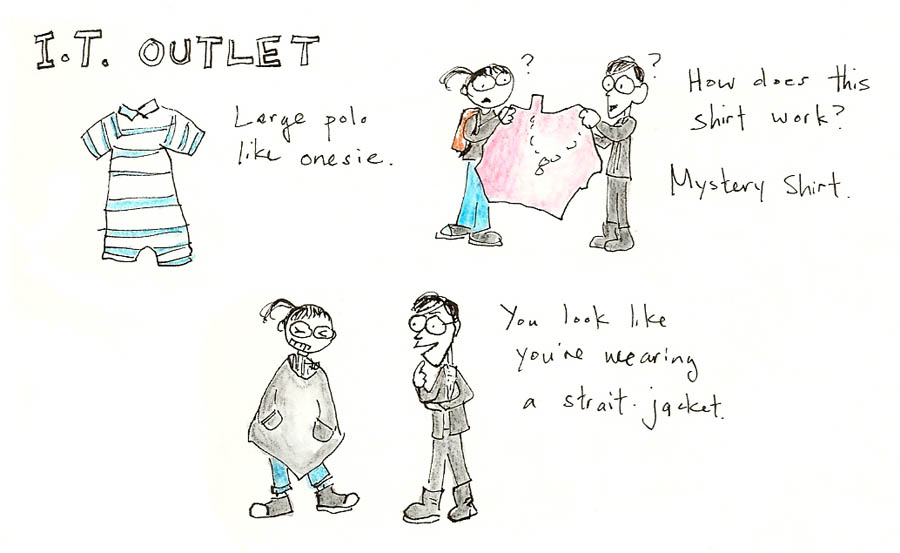 I.T. OUTLET
Large polo
like onesie.
?
?
How does this
shirt work?
Mystery Shirt.
You look like
you're wearing
a strait-jacket.